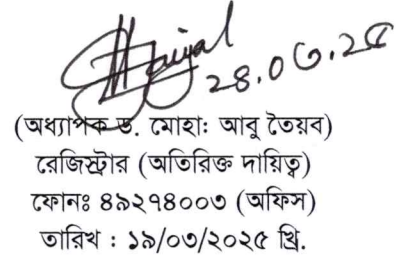 ২৪.০৩.২৫
(অধ্যাপক ড. মোহাঃ আবু তৈয়ব)
রেজিস্ট্রার (অতিরিক্ত দায়িত্ব)
ফোনঃ ৪৯২৭৪০০৩ (অফিস)
তারিখ : ১৯/০৩/২০২৫ খ্রি.